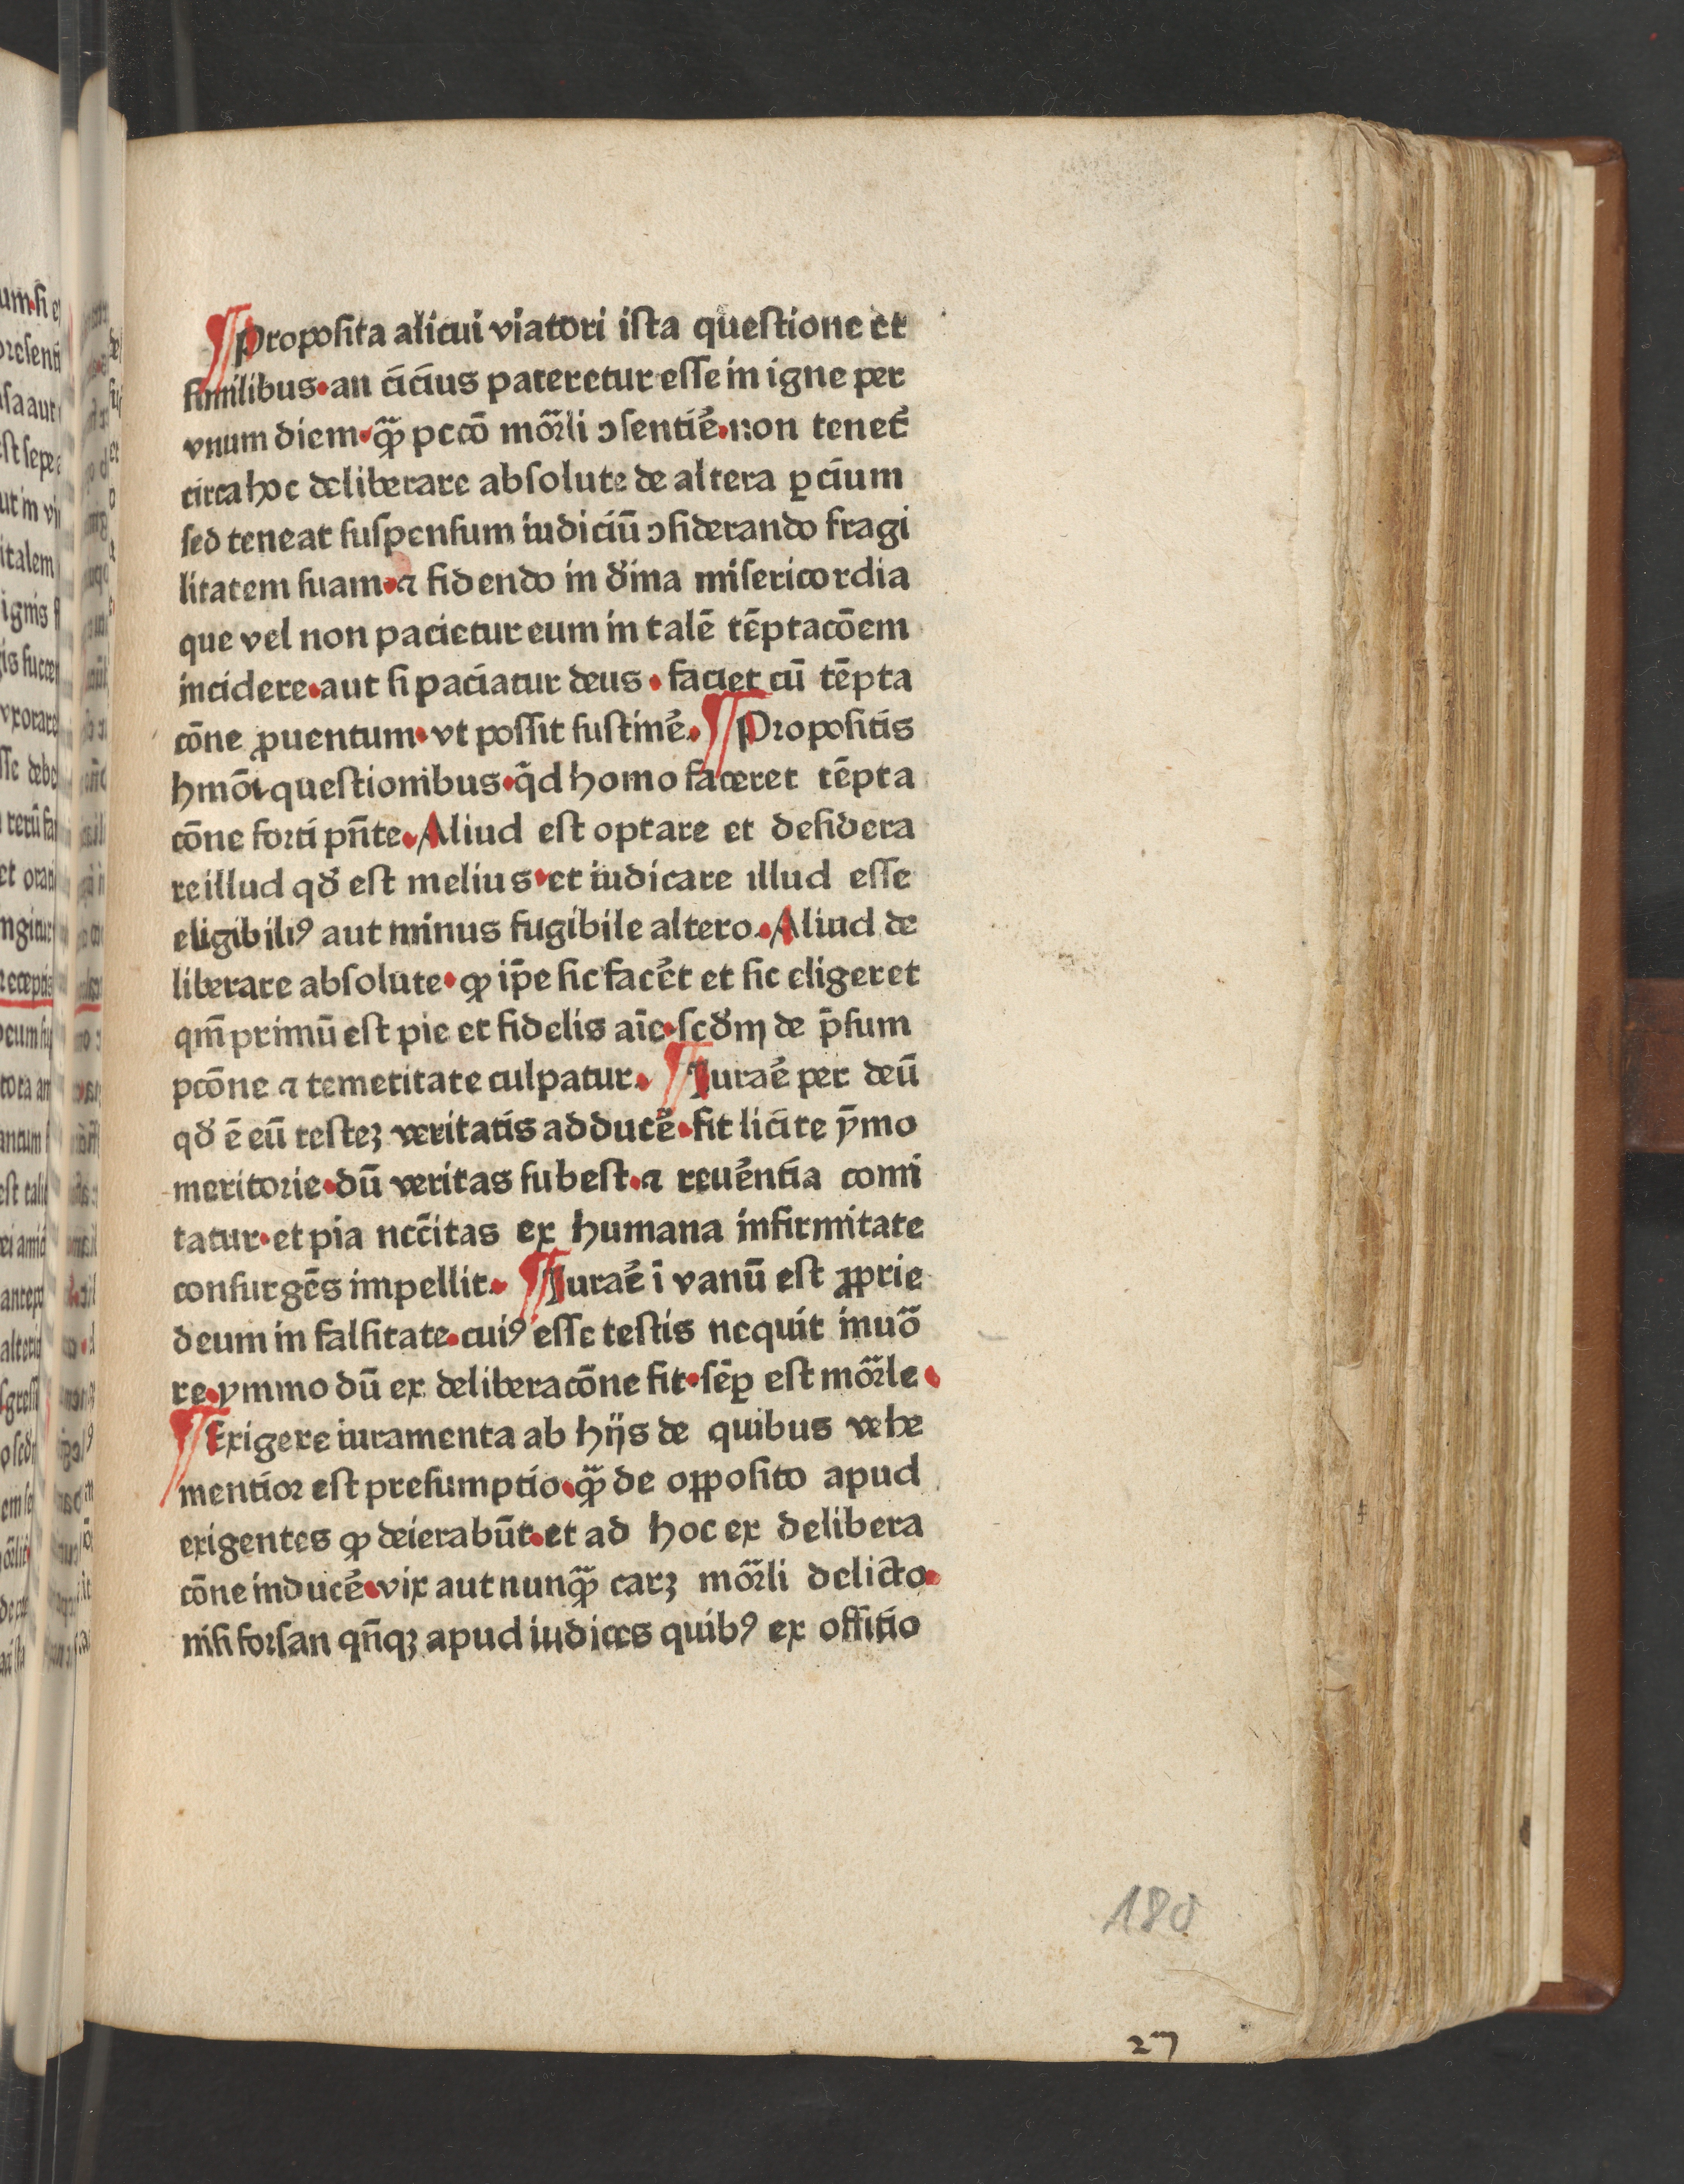 ¶Proposita alicui viatori ista questione et
similibus·an cicius pateretur esse in igne per
vnum diem·qᷓ pccō moᷓrli ↄsentiē·non tenet᷑
circa hoc deliberare absolute de altera ꝑcium
sed teneat suspensum iudiciū ↄsiderando fragi
litatem suam·⁊ fidendo in diuīna misericordia
que vel non pacietur eum in talē tēptacōem
incidere·aut si paciatur deus·faciet cū tēpta
cōne ꝓuentum·vt possit sustinē.¶Propositis
hmōi questionibus·qd̄ homo faceret tēpta
cōne forti pn̄te·Aliud est optare et desidera
re illud qđ est melius·et iudicare illud esse
eligibiliꝰ aut minus fugibile altero·Aliud de
liberare absolute·ꝙ ip̄e sic facet᷑ et sic eligeret
qm̄ primū est pie et fidelis aīe·scđm de p̄sum
pcōne ⁊ temeritate culpatur.¶Iurar̄e per deū
qđ ē eū testeꝫ veritatis adducē·fit licite ȳmo
meritorie·dū veritas subest·⁊ reuēntia comi
tatur·et pia ncc̄itas ex humana infirmitate
consurgēs impellit.¶Iuraē ī vanū est ꝓprie
deum in falsitate·cuiꝰ esse testis nequit inuō
re·ymmo dū ex deliberacōne fit·sēꝑ est moᷓrle·
¶Exigere iuramenta ab hijs de quibus vehe
mentior est presumptio·qᷓ de oꝓposito apud
exigentes ꝙ deierabūt·et ad hoc ex delibera
cōne inducē·vix aut nunqᷓ carꝫ moᷓrli delicto·
nisi forsan qn̄qꝫ apud iudices quibꝰ ex offitio
180
27